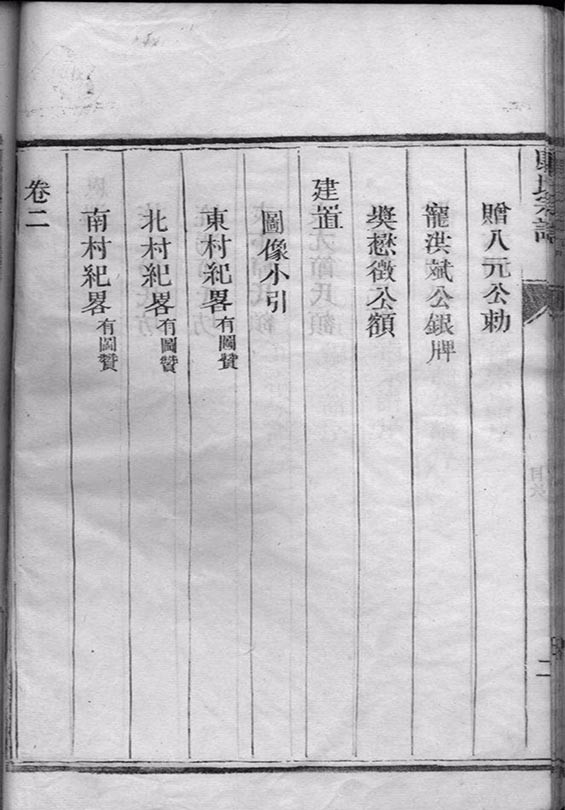 贈八元公勅
寵洪斌公銀牌
奬懋徵公額
建置
圖像小引
東村紀畧有圖贊
北村紀畧有圖贊
南村紀畧有圖贊
卷二
二